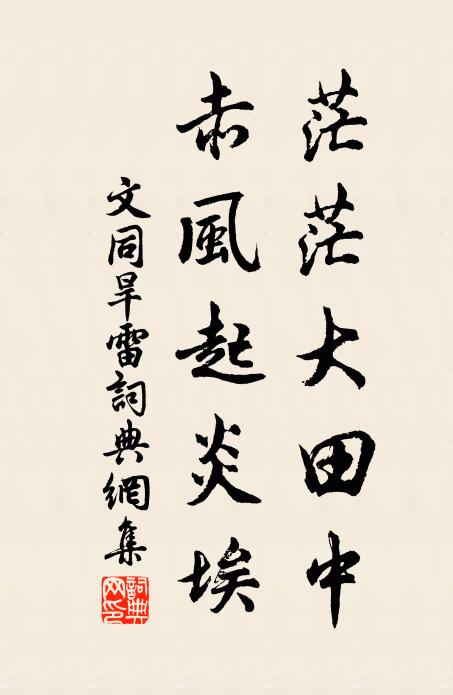 茫茫大田中
赤風起炎埃
文同旱雷詞典網集
詞典网印